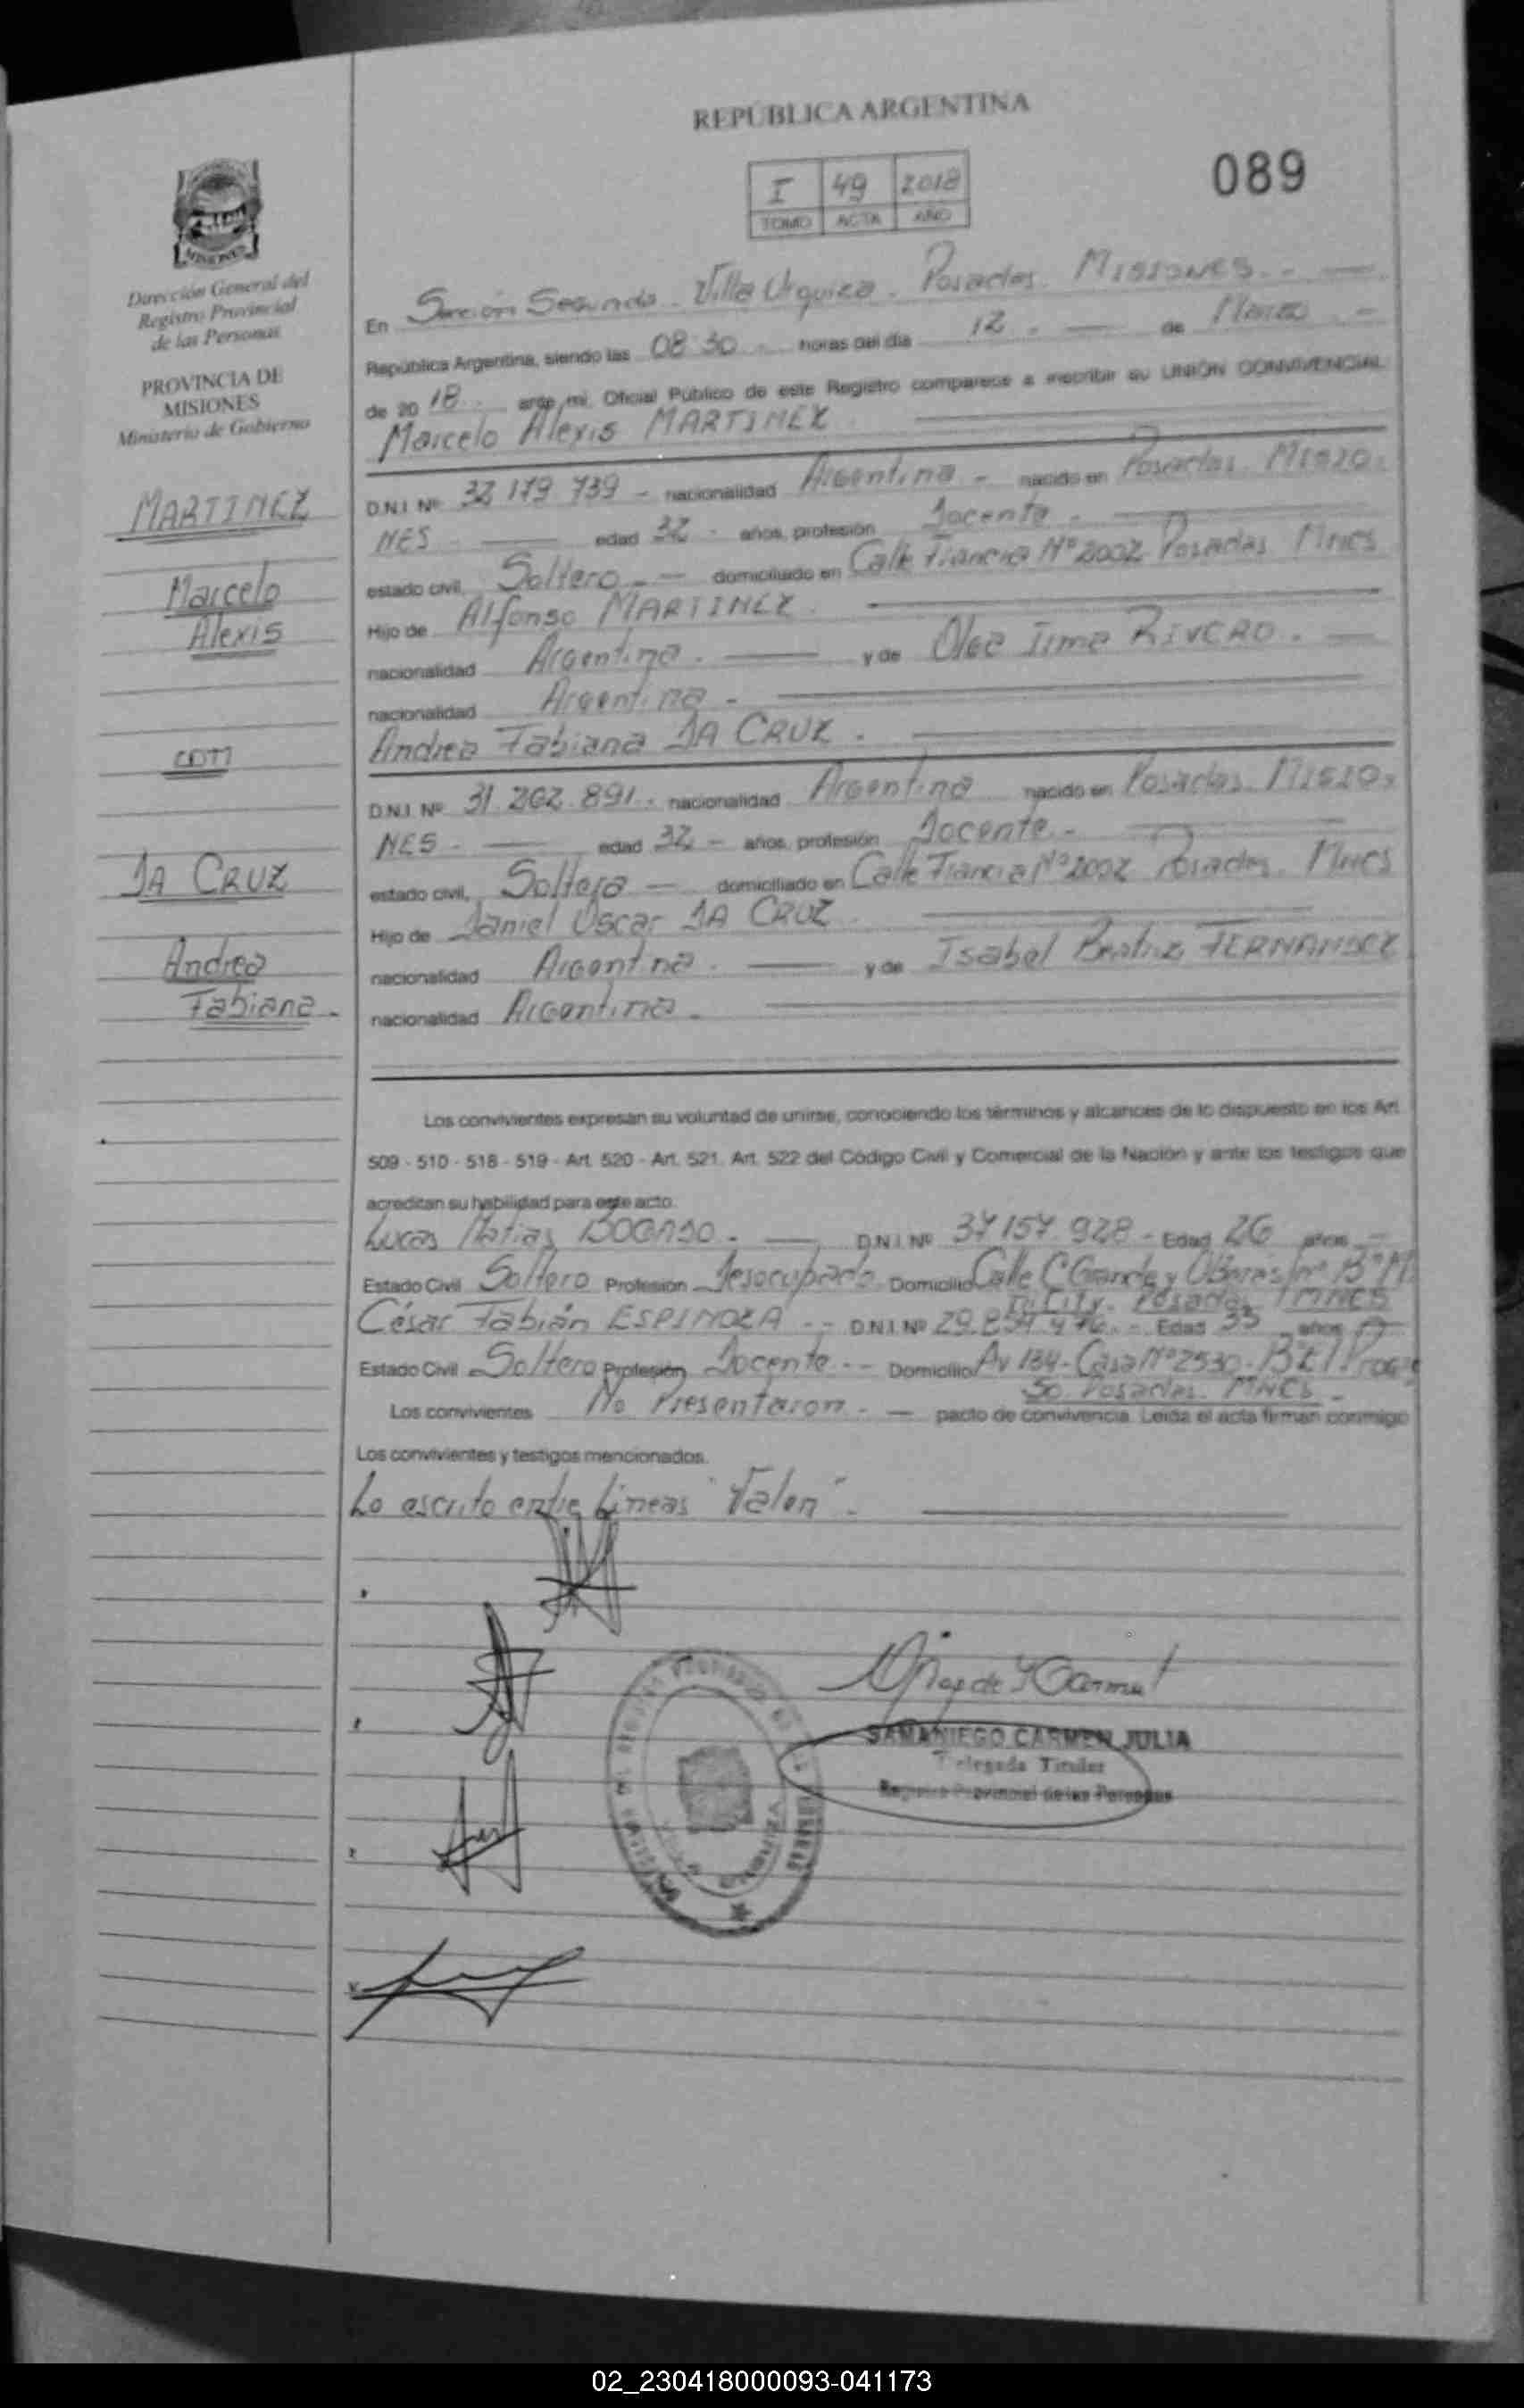 REPÚBLICA ARGENTINA
089
I 49 2018
TOMO ACTA AÑO
MISIONES
Dirección General del
Registro Provincial
de las Personas
PROVINCIA DE
MISIONES
Ministerio de Gobierno
MARTINEZ
Marcelo
Alexis
DA CRUZ
Andrea
Fabiana.-
En Sección Segunda - Villa Urquiza - Posadas MISIONES.-
República Argentina, siendo las 08:30 - horas del día 12.- de Marzo -
de 20 18.- ante mi, Oficial Público de este Registro comparece a inscribir su UNIÓN CONVIVENCIAL
Marcelo Alexis MARTINEZ.
D.N.I. Nº 32 179 739 - nacionalidad Argentina - nacido en Posadas - MISIO-
NES - edad 32 - años, profesión Docente -
estado civil, Soltero - domiciliado en Calle Francia Nº 2002 Posadas Mnes
Hijo de Alfonso MARTINEZ.
nacionalidad Argentina. y de Olga Irma RIVERO.-
nacionalidad Argentina -
Andrea Fabiana DA CRUZ.
D.N.I. Nº 31.262.891.- nacionalidad Argentina nacido en Posadas - MISIO-
NES - edad 32 - años, profesión Docente -
estado civil, Soltera - domiciliado en Calle Francia Nº 2002 Posadas - Mnes
Hijo de Daniel Oscar DA CRUZ.
nacionalidad Argentina. y de Isabel Beatriz FERNANDEZ
nacionalidad Argentina -
Los convivientes expresan su voluntad de unirse, conociendo los términos y alcances de lo dispuesto en los Art.
509 - 510 - 518 - 519 - Art. 520 - Art. 521. Art. 522 del Código Civil y Comercial de la Nación y ante los testigos que
acreditan su habilidad para este acto.
Lucas Matias - D.N.I. Nº 37 157 928 - Edad 26 años -
Estado Civil Soltero Profesión Desocupado Domicilio Calle C Grande y
Posadas MNES
César Fabián ESPINOZA - D.N.I. Nº 29.854.476.- Edad 35 años
Estado Civil Soltero Profesión Docente - Domicilio Av 134 - Casa Nº 2530 -
so Posadas - MNES -
Los convivientes No Presentaron - pacto de convivencia. Leída el acta firman conmigo
Los convivientes y testigos mencionados.
Lo escrito entre Lineas "Valen".
SAMANIEGO CARMEN JULIA
Delegada Titular
Registro Provincial de las Personas
02_230418000093-041173